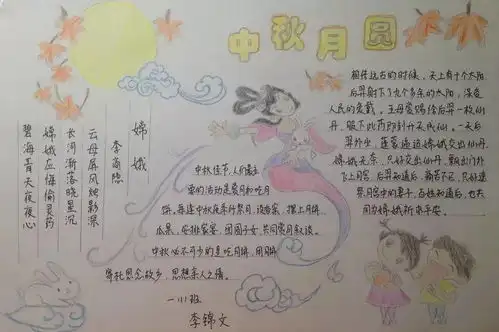 中秋月圆
嫦娥
李商隐
云母屏风烛影深
长河渐落晓星沉
嫦娥应悔偷灵药
碧海青天夜夜心
中秋佳节，人们最主
要的活动是赏月和吃月
饼，每逢中秋夜举行祭月，设香案，摆上月饼、
瓜果，安排家宴，团圆子女，共同赏月叙谈。
中秋必不可少的是吃月饼，用月饼
寄托思念故乡，思想亲人之情。
一⑾班
李锦文
相传远古的时候，天上有十个太阳，
后羿射下了九个多余的太阳，深受
人民的爱戴。王母娘娘给后羿一枚仙
丹，服下此药即刻升天成仙。一天后
羿外出，蓬蒙逼迫嫦娥交出仙丹，
嫦娥无奈，只好
飞上月宫。后羿知道后，痛苦不已，只好遥
祭月宫中的妻子，百姓知道后，也共
同为嫦娥祈求平安。